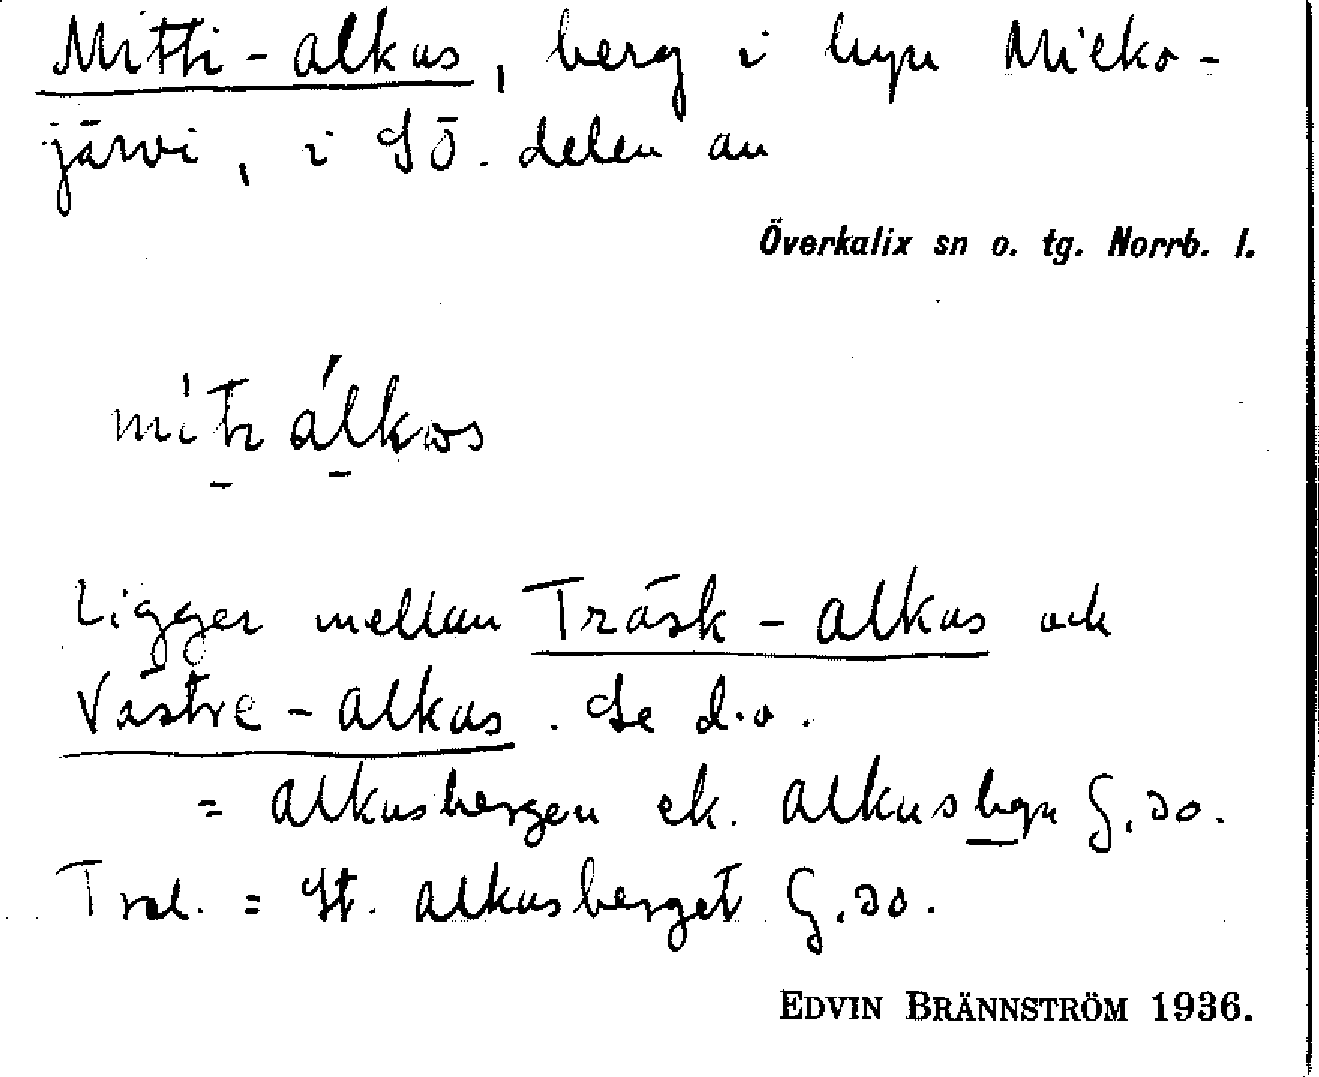 Mitti-alkus, berg i byn Mieko-
järvi, i SÖ. delen av
Överkalix sn o. tg. Norrb. l.
Ligger mellan Träsk-alkus och
Västre-alkus. Se d.o.
= Alkusbergen ek. Alkusbyn G.30.
Trol. = St. Alkusberget G.30.
EDVIN BRÄNNSTRÖM 1936.